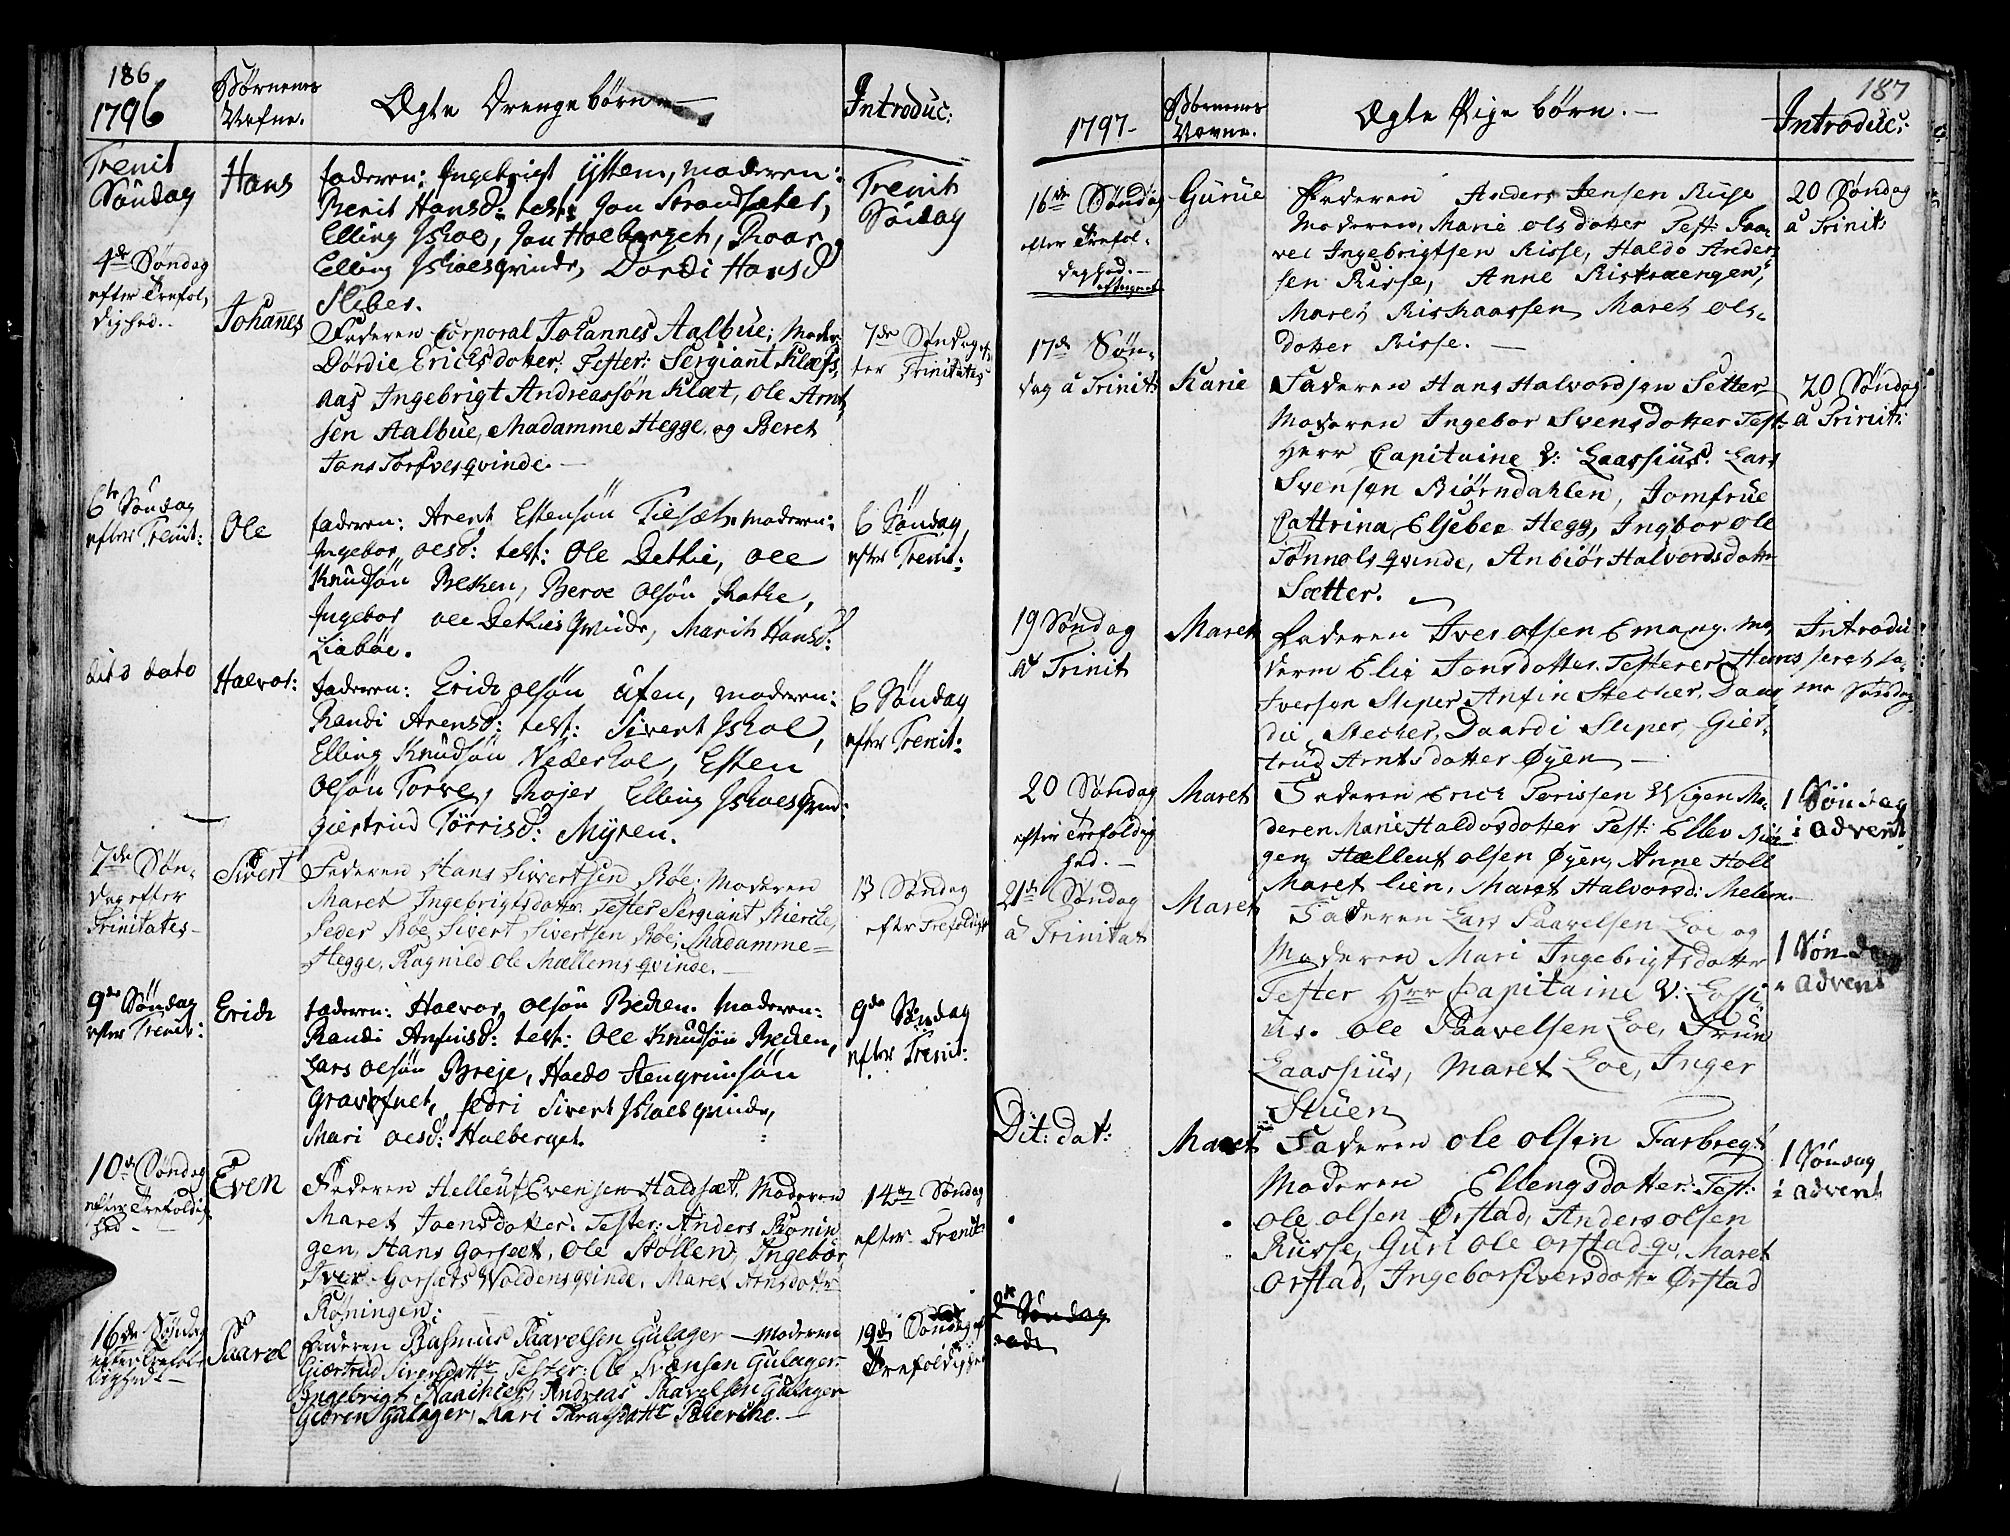 186
1796
Børnenes
Nafne.
Ægte Drengebørn
Introduc:
Trenit
Søndag
Hans
faderen: Ingebrigt Ÿttem, moderen:
Berit Hansd: test: Jon Strandsæter,
Elling Ishoel, Jon Hoelberget, Roar,
Elling Ishoels qvinde, Dordi Hansd
Sliber.
Trenit
Søndag
4de Søndag
efter Trefol,
dighed..
Johanes
Faderen Corporal Johannes Aalbue; Moder
Dørdie Ericksdotter. Tester: Sergiant Klæfs,
aas Ingebrigt Andreassøn Klæt, Ole Arnt,
sen Aalbue, Madamme Hegge, og Beret
Jans Torfves qvinde.
7de Søndag ef,
ter Trinitates
6te Søndag
efter Trenit:
Ole
faderen: Arent Estensøn Fiesæt. moderen:
Ingebor olsd: test: Ole Dethie, ole
Knudsøn Becken, Beroe olsøn Rathe,
Ingebor ole Dethies qvinde, Marit Hansd:
Liabøe.
6 Søndag
efter Trenit:
dito dato
Halvor:
faderen: Erich olsøn Ufen, moderen:
Randi Arensd: test: Sivert Ishol,
Elling Knudsøn Nederhol, Esten
olsøn Torve, Rojer Elling Ishoels qvind:
giertrud Tørrisd: Myren.
6 Søndag
efter Trenit:
7de Søn-
dag efter
Trinitates-
Sivert
Faderen Hans Sivertsen Røe. Moderen
Maret Ingebrigtsdatter. Tester Sergiant Bierche,
Peder Røe, Sivert Sivertsen Røe; Madamme=
Hegge, Ragnild Ole Mællems qvinde.
13 Søndag
efter Trefoldigh
9de Søndag
efter Trenit:
Erich
faderen: Halvor olsøn Becken. moderen:
Randi Anfinsd: test: Ole Knudsøn Becken,
Lars olsøn Breje, Haldo Stengrimsøn
Gravefnet, sedri Sivert Ishoels qvinde,
Mari olsd: Holberget.
9de Søndag
efter Trenit:
10de Søndag
efter Trefoldig
hed-
Even
Faderen Helleuf Evensen Haldsæt. Moderen
Maret Joensdotter. Tester: Anders Rønin
gen, Hans Gorsæt, Ole Støllen, Ingebor
Iver Gorsets Woldens qvinde, Maret Arnsdotter
Røningen:
14de Søndag
efter Trenit:
16de Søndag
efter Trefol
dighed.
Paavel
Faderen Rasmus Paavelsen Gulager - Moderen
Giærtrud Siversdattr Tester: Ole Svænsen Gulager.
Ingebrigt Haachier, Andreas Paavelsen Gulager
Gioren Gulager, Kari Taraldsdattr Skierche.-
19de Søndag ef
Trefoldighed
187
1797-
Børnenes
Navne.
Ægte Pige børn.-
Introduc:
16de Søndag
efter Trefol-
dighed.-
Gurue
Faderen Anders Jensen Risse
Moderen, Marie olsdotter Test: Paa-
vel Ingebrigtsen Risse, Haldo Ander
sen Risse, Anne Riskraengen,
Maret Riskaassen Maret ols,
dotter Risse.
20 Søndag
a Trinit:
17de Søn,
dag a Trinit:
Karie
Faderen Hans Halvordsen Setter
Moderen Ingebor Svensdotter Test:
Herr Capitaine V: Laassius. Lars
Svensen Biørndahlen, Jomfrue
Cattrina Elseben Hegg, Ingbor ole
Tønnols qvinde, Anbiør Halvordsdotter
Sætter.
20 Søndag
a Trinit:
19 Søndag
at Trinit
Maret
Faderen Iver olsen Emang. Mo,
deren Elie Jensdotter. Testerer Hans
Iversen Sliper, Anfin Stecher, Daar
die Stecher, Daardi Sliper, Gier
trud Arntsdotter Øyen
Introdu
seret sa-
me Søndag
20 Søndag
efter Trefoldig
hed.-
Maret
Faderen Erich Torissen Wigen Mo,
deren Marie Haldosdotter Test: Ellev Riin
gen, Hællent olsen Øyen, Anne Holl
Maret lien, Maret Halvorsd: Melem.
1 Søndag
i advent
21de Søndag
a Trinitat
Maret
Faderen Lars Paavelsen Loe og
Moderen Mari Ingebrigtsdotter
Tester Hrr Capitaine V: Lassi,
us. ole Paavelsen Loe, Frue
Laassius, Maret Loe, Inger
Stuen
1 Søndag
i advent
Dit: dat:
Maret
Faderen ole olsen Farbregt
Moderen Ellengsdotter: Test:
ole olsen Ørstad, Anders olsen
Riisse, Guri ole orstad qv, Maret
orstad, Ingebor Siversdotter Ørstad
1 Søndag
i advent